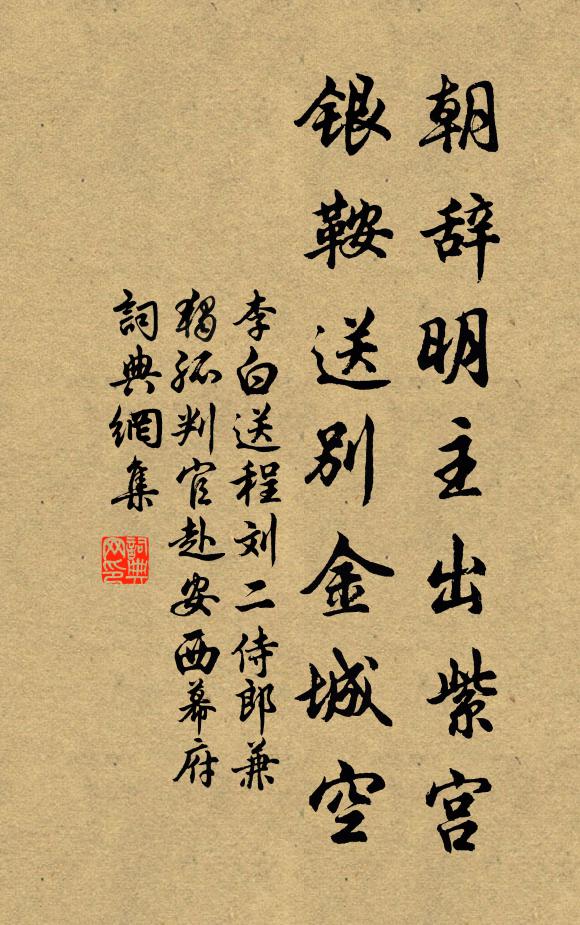 朝辞明主出紫宫
银鞍送别金城空
李白送程刘二侍郎兼
独孤判官赴安西幕府
詞典網集
詞典
网印